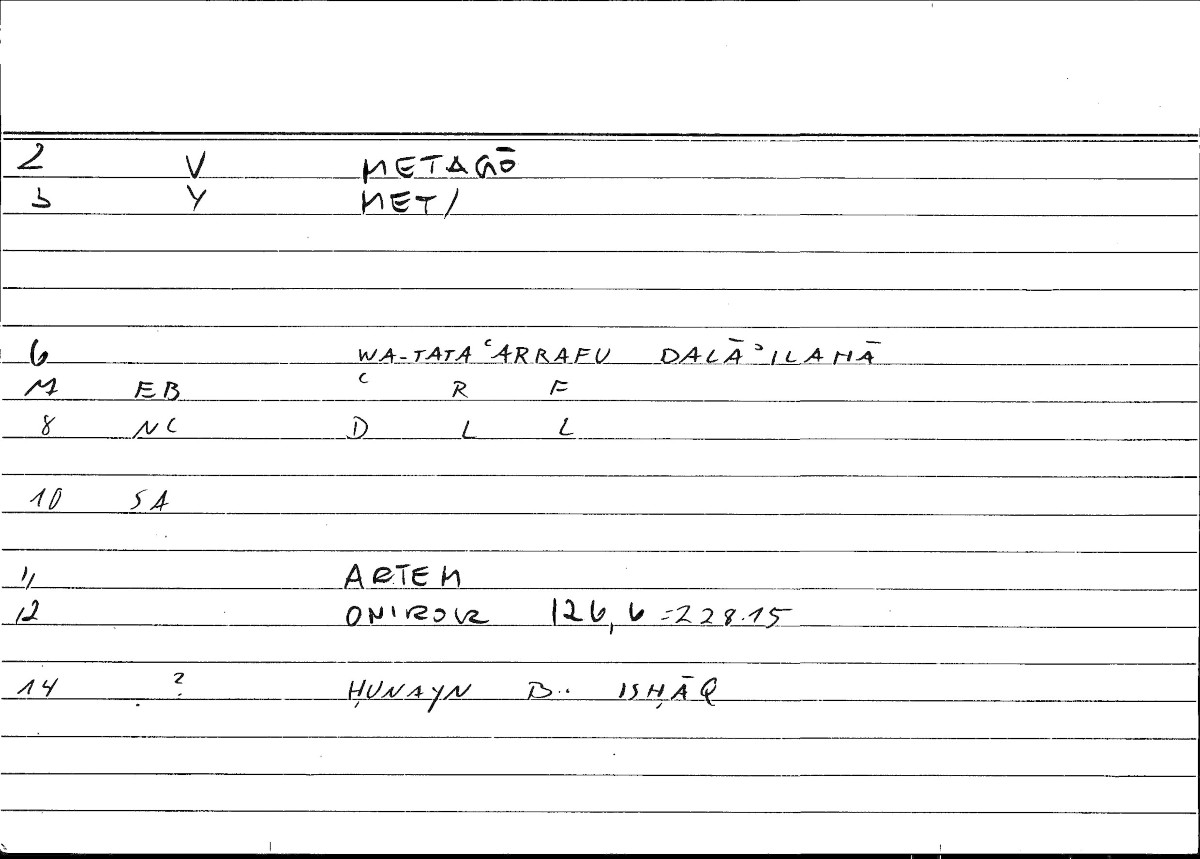 2 V METAGŌ
3 Y MET/
6 WA-TATAʿARRAFU DALĀʾILAHĀ
M EB ʿ R F
8 NC D L L
10 SA
11 ARTEM
12 ONIROCR 126,6 =228.15
14 ? ḤUNAYN B.. ISḤĀQ